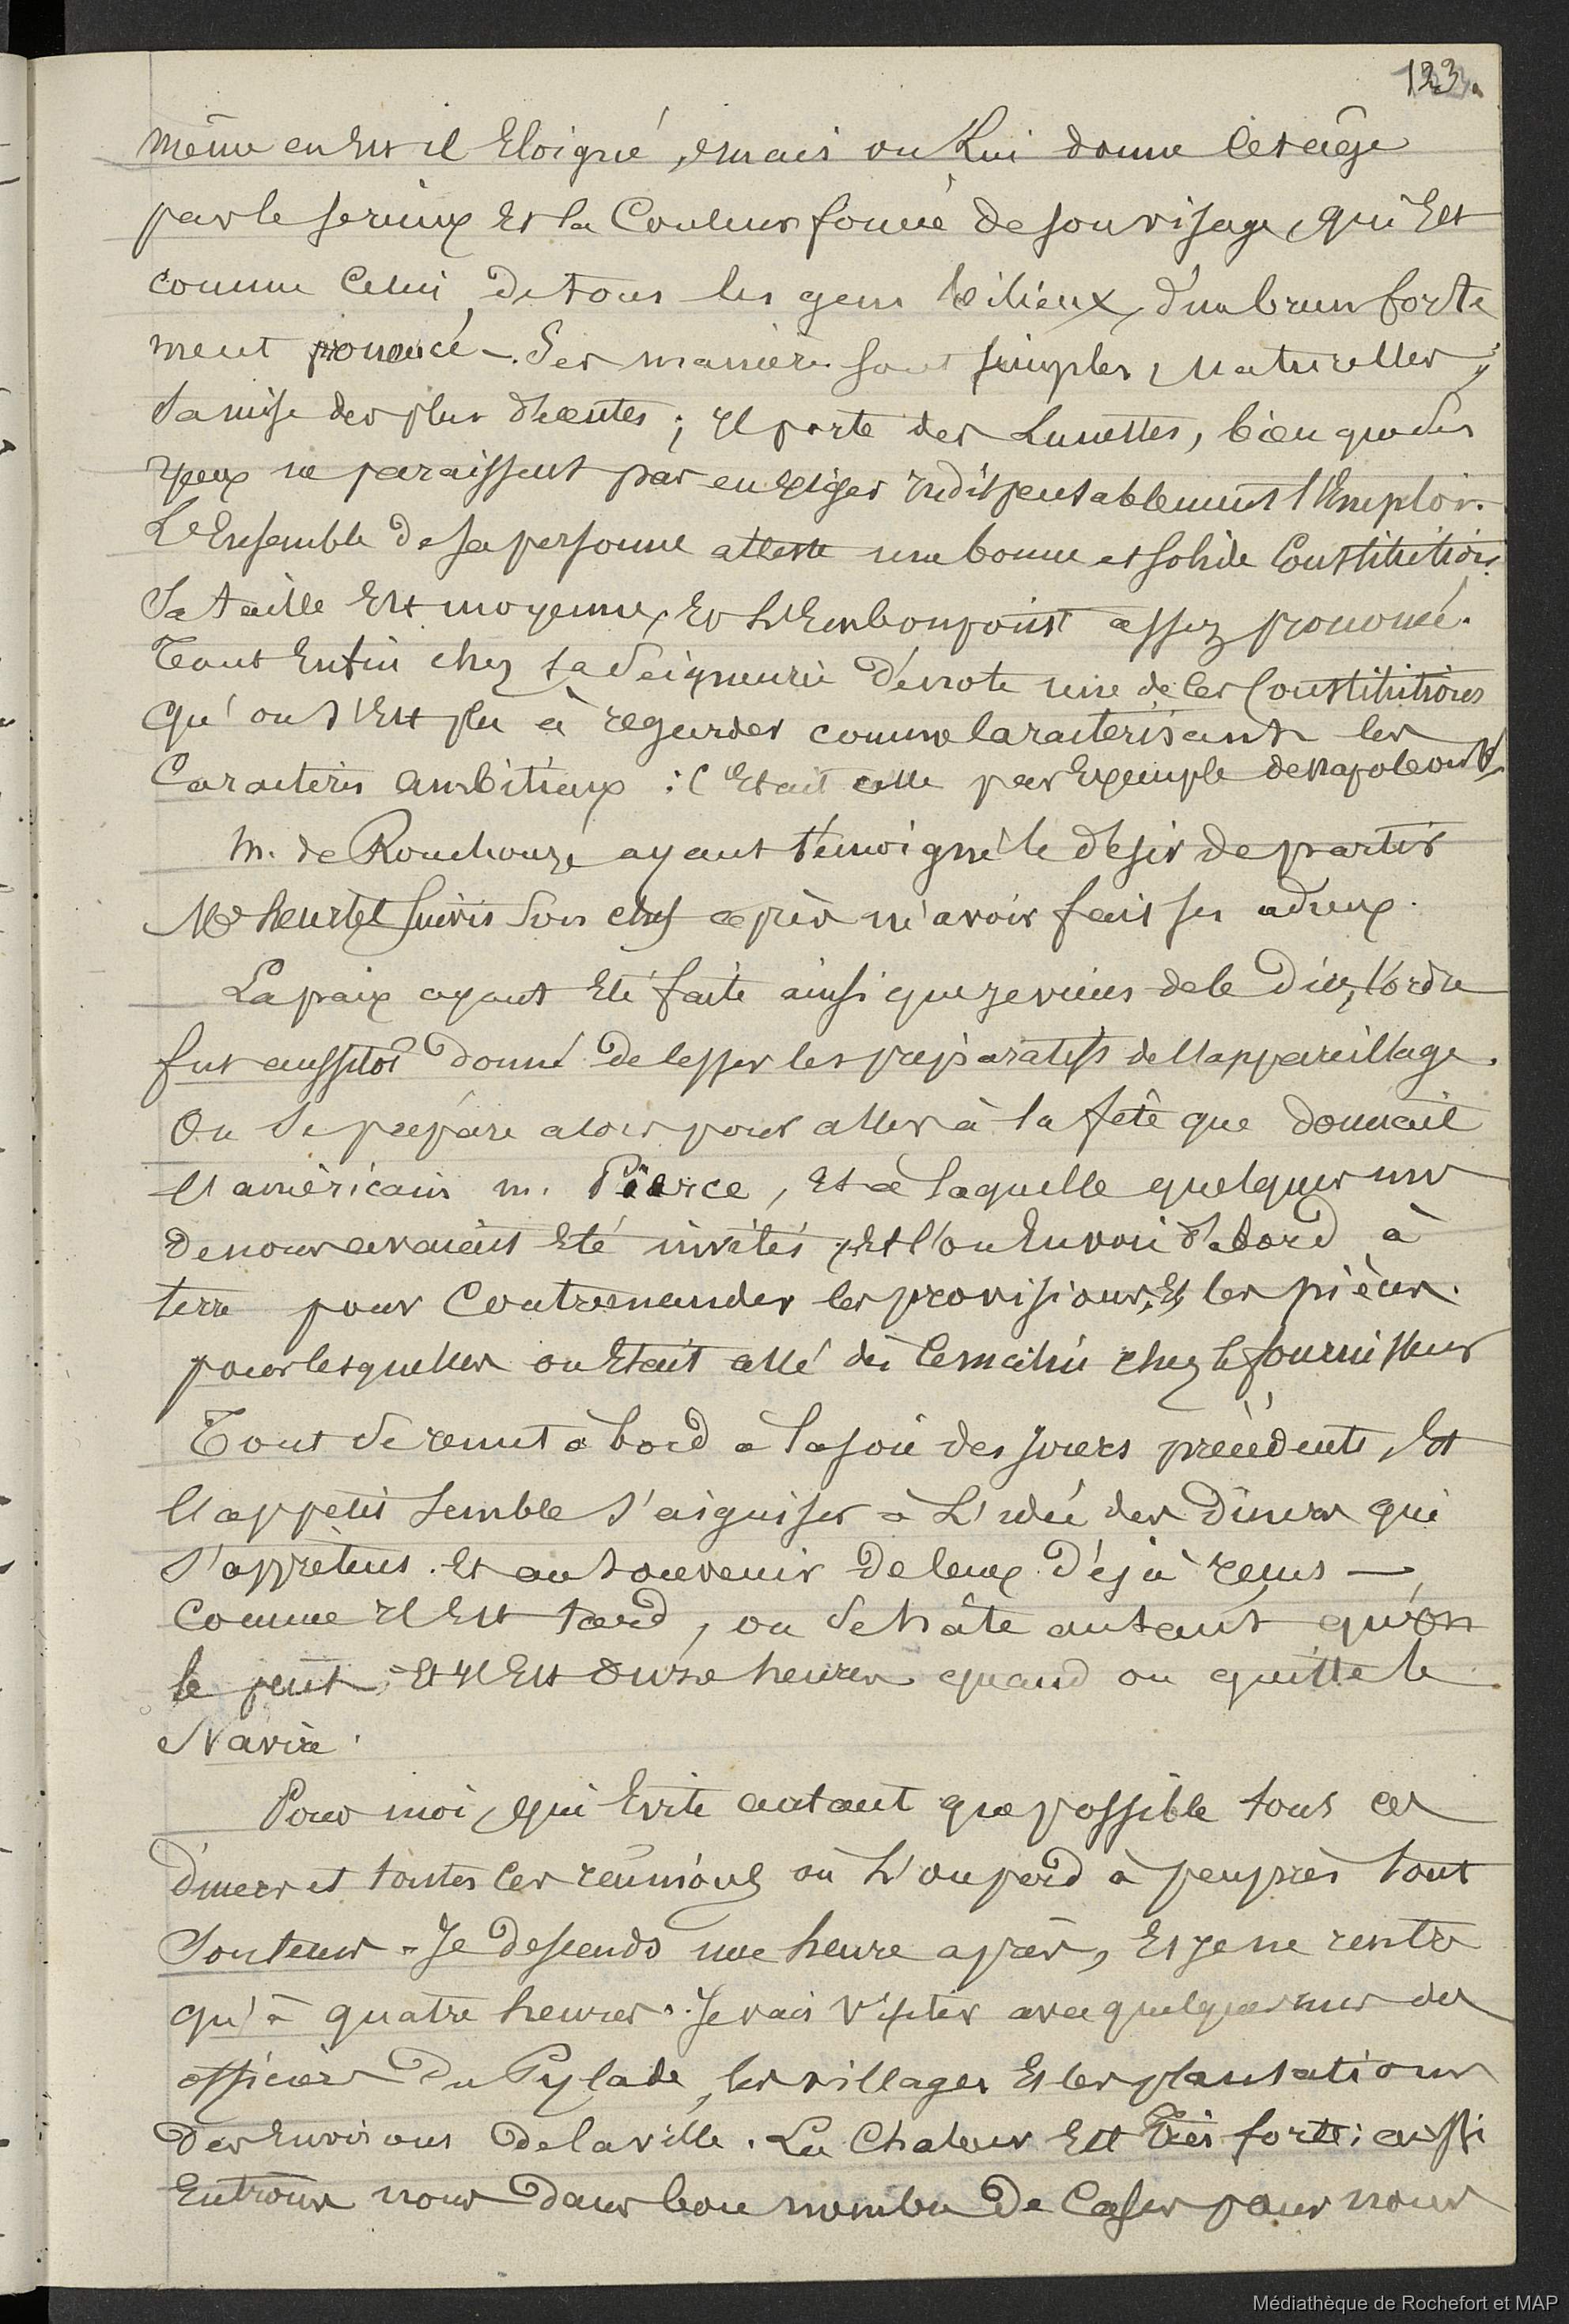 123.
même en est il Eloigné, mais on Lui donne cet âge
par le serieux et la Couleur foncée de son visage, qui Est
comme Celui de tous les gens bilieux, d'un brun forte
ment prononcé -. Ses manières sont simples, Naturelles;
Sa mise des plus décentes; Il porte des Lunettes, bien que ses
yeux ne paraissent pas en exiger indispensablement l'Emploi.
L'Ensemble de sa personne atteste une bonne et solide Constitution.
Sa taille Est moyenne, Et L'Embonpoint assez prononcé.
Tout Enfin chez sa Seigneurie dénote une de ces Constitutions
qu'on s'Est plu à regarder comme caracterisant les
Caracteres Ambitieux : C'Etait celle par Exemple de Napoleon
M. de Rouchouze ayant témoigné le désir de partir
Mr heurtel suivis son chef après m'avoir fait ses adieux.
La paix ayant Eté faite ainsi que je viens de le Dire, l'ordre
fut aussitot donné de cesser les préparatifs de l'appareillage.
On se prépare alors pour aller à la fête que donnait
l'américain m. Pierce, Et à laquelle quelques uns
de nous avaient Eté invités, et l'on Envoi d'abord à
terre pour Contremander les provisions, Et les pièces.
pour lesquelles on Etait allé dès le matin chez le fournisseur
Tout se remet à bord à la joie des jours précédents, Et
l'appetit semble s'aiguiser à L'idée des Diners qui
s'apprêtent. Et au souvenir de ceux déjà reçus —
Comme Il Est tard, on se hâte autant qu'on
le peut, Et Il Est onze heures quand on quitte le
Navire.
Pour moi, qui Evite autant que possible tous ces
diners et toutes ces réunions où L'on perd à peu près tout
son temps. Je descends une heure après, Et je ne rentre
qu'à quatre heures. Je vais visiter avec quelques uns des
officiers Du Pylade, les villages Et les plantations
des Environs de la ville. La Chaleur Est très forte; aussi
Entrons nous dans bon nombre de Cases pour nous
Médiathèque de Rochefort et MAP